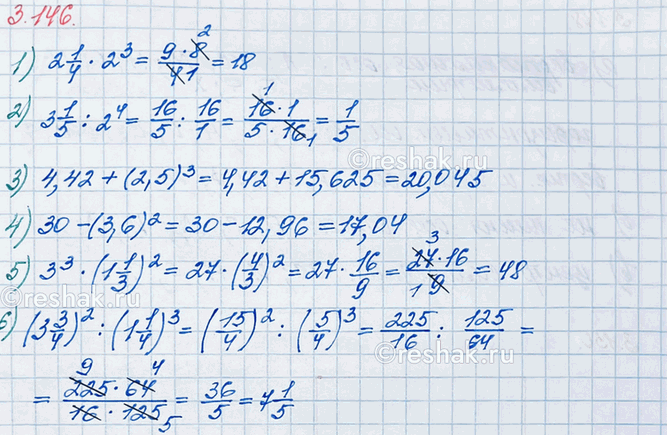 3.146.
1) 2 1/4 · 2³ = 9·8/4 = 18 2 1
2) 3 1/5 : 2⁴ = 16/5 : 16/1 = 16·1/5·16 = 1/5 1 1
3) 4,42 + (2,5)³ = 4,42 + 15,625 = 20,045
4) 30 – (3,6)² = 30 – 12,96 = 17,04
5) 3³ · (1 1/3)² = 27 · (4/3)² = 27 · 16/9 = 27·16/9 = 48 3 1
6) (3 3/4)² : (1 1/4)³ = (15/4)² : (5/4)³ = 225/16 : 125/64 =
= 225·64/16·125 = 36/5 = 7 1/5 9 4 5
©reshak.ru
©reshak.ru
©reshak.ru
©reshak.ru